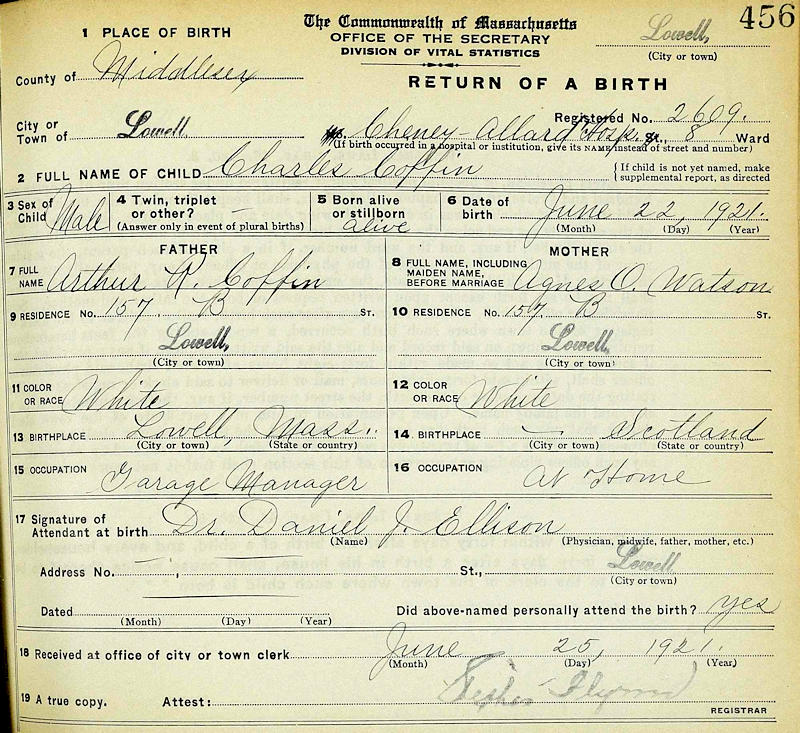 456
The Commonwealth of Massachusetts
OFFICE OF THE SECRETARY
DIVISION OF VITAL STATISTICS
Lowell,
(City or town)
1 PLACE OF BIRTH
RETURN OF A BIRTH
County of Middlesex
Registered No. 2609.
City or Town of Lowell,
Cheney-Allard Hosp. St., 8 Ward
(If birth occurred in a hospital or institution, give its NAME instead of street and number)
2 FULL NAME OF CHILD Charles Coffin
{ If child is not yet named, make supplemental report, as directed
3 Sex of Child Male
4 Twin, triplet or other? —
(Answer only in event of plural births)
5 Born alive or stillborn alive
6 Date of birth June 22, 1921.
(Month) (Day) (Year)
FATHER
7 FULL NAME Arthur R. Coffin
9 RESIDENCE No. 157 B St.
Lowell,
(City or town)
11 COLOR OR RACE White
13 BIRTHPLACE Lowell, Mass.
(City or town) (State or country)
15 OCCUPATION Garage Manager
MOTHER
8 FULL NAME, INCLUDING MAIDEN NAME, BEFORE MARRIAGE Agnes O. Watson
10 RESIDENCE No. 157 B St.
Lowell,
(City or town)
12 COLOR OR RACE White
14 BIRTHPLACE — Scotland
(City or town) (State or country)
16 OCCUPATION At Home
17 Signature of Attendant at birth Dr. Daniel J. Ellison
(Name) (Physician, midwife, father, mother, etc.)
Address No. — , — St., Lowell
(City or town)
Dated
(Month) (Day) (Year)
Did above-named personally attend the birth? yes
18 Received at office of city or town clerk June 25, 1921.
(Month) (Day) (Year)
19 A true copy. Attest: Stephen Flynn
REGISTRAR